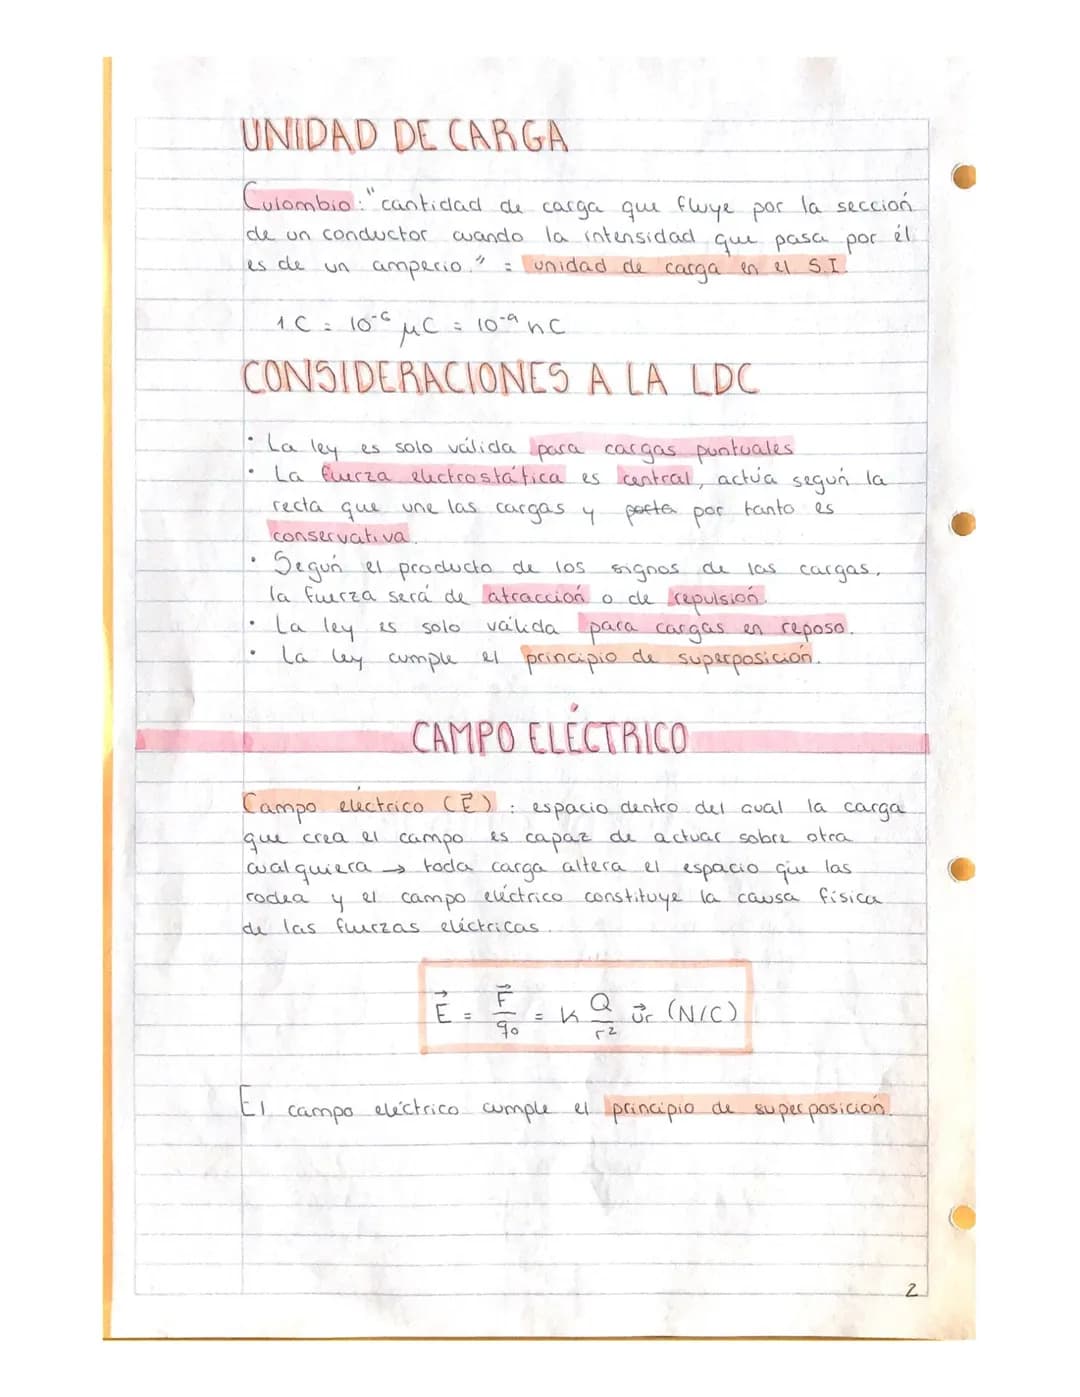 UNIDAD DE CARGA
Culombio: "cantidad de carga que fluye por la sección
de un conductor cuando la intensidad que pasa por él
es de un amperio." = unidad de carga en el S.I.
1 C = 10⁻⁶ μC = 10⁻⁹ nC
CONSIDERACIONES A LA LDC
• La ley es solo válida para cargas puntuales
• La fuerza electrostática es central, actúa según la
recta que une las cargas y por tanto es
conservativa.
• Según el producto de los signos de las cargas,
la fuerza será de atracción o de repulsión.
• La ley es solo válida para cargas en reposo.
• La ley cumple el principio de superposición.
CAMPO ELÉCTRICO
Campo eléctrico (E⃗) : espacio dentro del cual la carga
que crea el campo es capaz de actuar sobre otra
cualquiera → toda carga altera el espacio que las
rodea y el campo eléctrico constituye la causa física
de las fuerzas eléctricas.
E⃗ = F⃗/q₀ = k Q/r² u⃗r (N/C)
El campo eléctrico cumple el principio de superposición.
2